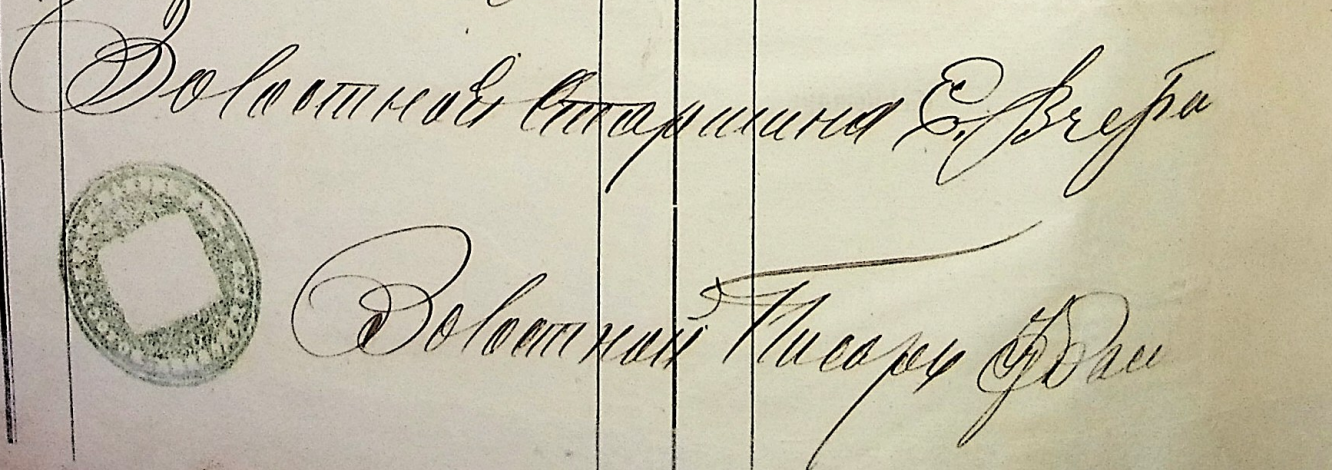 Волостной Старшина Е.
Волостной Писарь